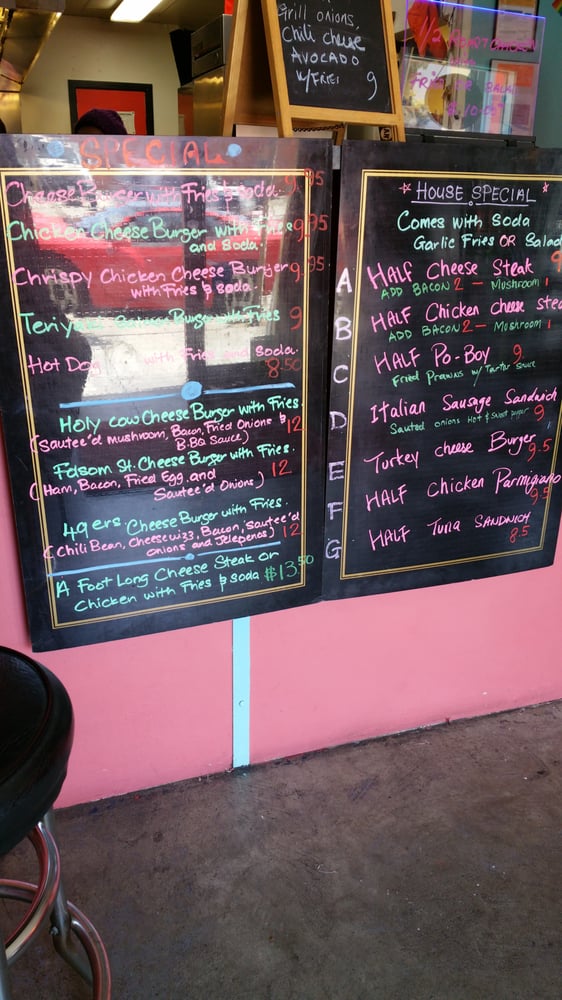 Grill onions,
Chili cheese
AVOCADO
w/FRIES 9
SPECIAL
Cheese Burger with Fries & soda. 9.95
Chicken Cheese Burger with 9.95
and Soda.
Chrispy Chicken Cheese Burger 9.95
with Fries & soda
Burger with Fries 9
Hot Dog with Fries and Soda.
8.50
Holy cow Cheese Burger with Fries
(Sautee'd mushroom, Bacon, Fried Onions & 12
B.BQ Sauce)
Folsom St. Cheese Burger with Fries.
(Ham, Bacon, Fried Egg and 12
Sautee'd Onions)
49ers Cheese Burger with Fries.
(Chili Bean, Cheese wizz, Bacon, Sautee'd
onions and Jelepenos) 12
A Foot Long Cheese Steak or
Chicken with Fries & soda $13.50
HOUSE SPECIAL
Comes with SODA
Garlic Fries OR Salad
A HALF Cheese Steak 9
ADD BACON 2 — Mushroom 1
B HALF Chicken cheese
ADD BACON 2 — Mushroom 1
C HALF Po-Boy 9
Fried Prawns w/ Tartar Sauce
D Italian Sausage Sandwich
Sauted onions Hot & sweet peper 9
E Turkey cheese Burger 9.5
F HALF Chicken Parmigiano
9.5
G HALF Tuna SANDWICH
8.5